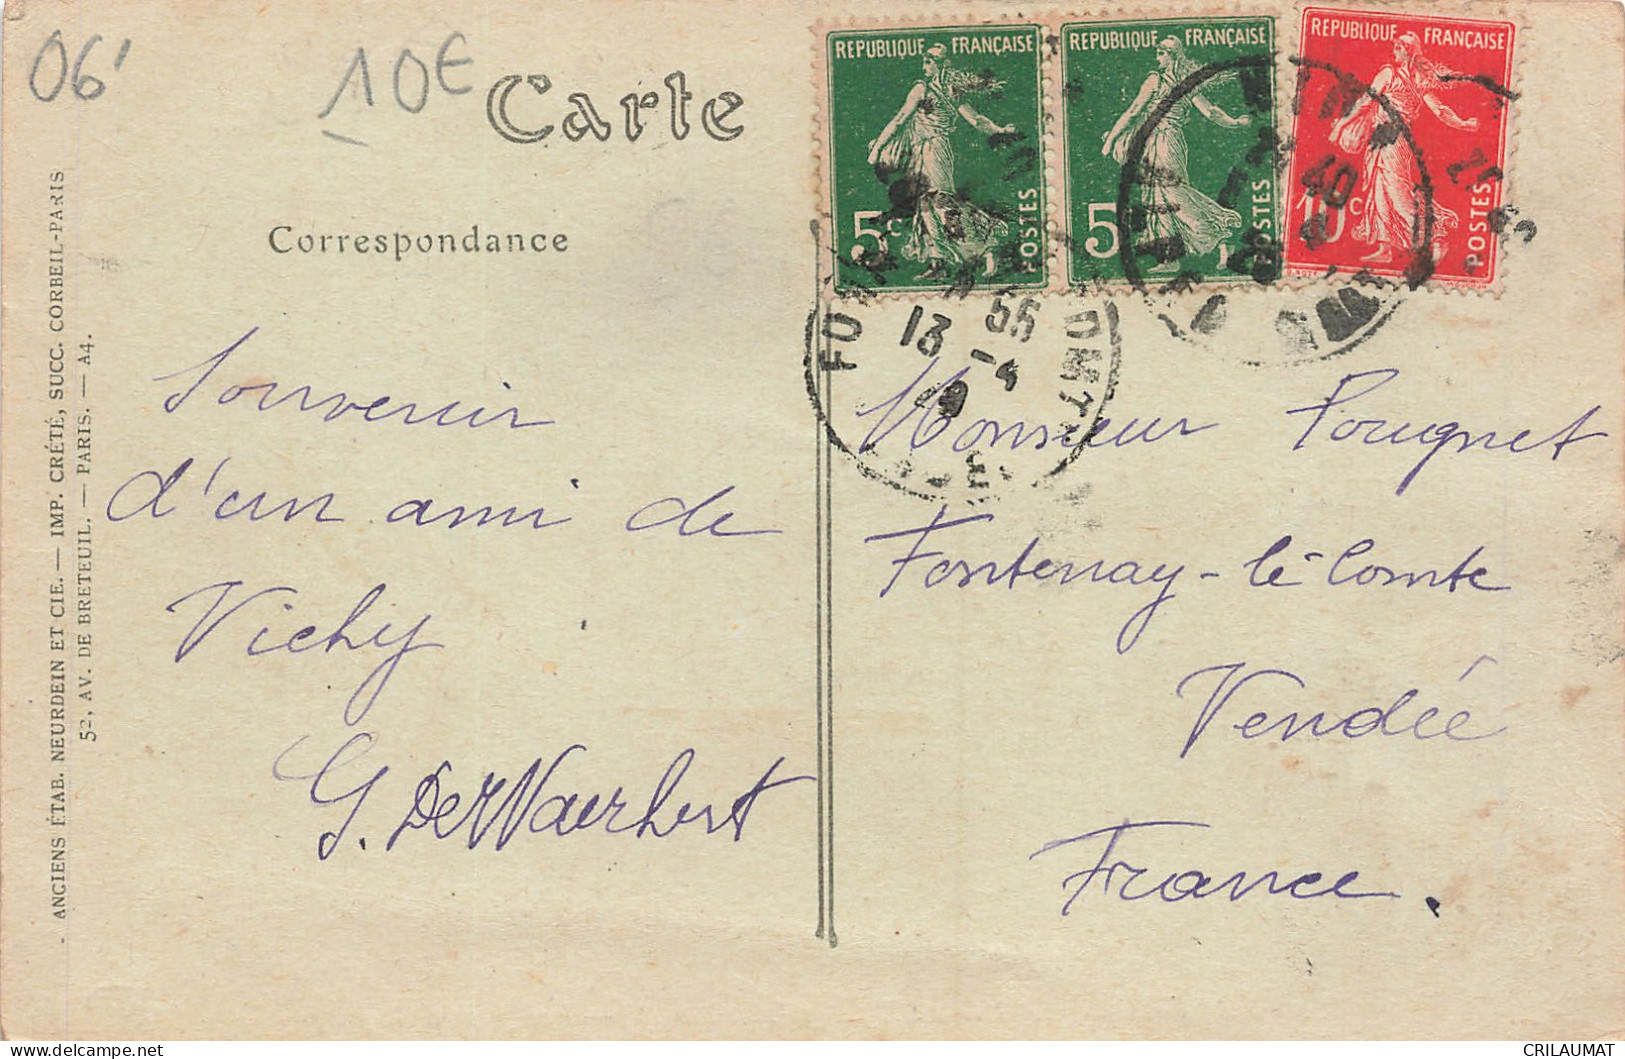 06'
10€
Carte
Correspondance
REPUBLIQUE FRANÇAISE
5c
POSTES
REPUBLIQUE FRANÇAISE
5
POSTES
REPUBLIQUE FRANÇAISE
10c
POSTES
13 55
-4
ANCIENS ÉTAB. NEURDEIN ET CIE. — IMP. CRÉTÉ, SUCC. CORBEIL-PARIS
52, AV. DE BRETEUIL. — PARIS. — A4.
Souvenir
d'un ami de
Vichy
Monsieur Pougnet
Fontenay-le Comte
Vendée
France.
CRILAUMAT